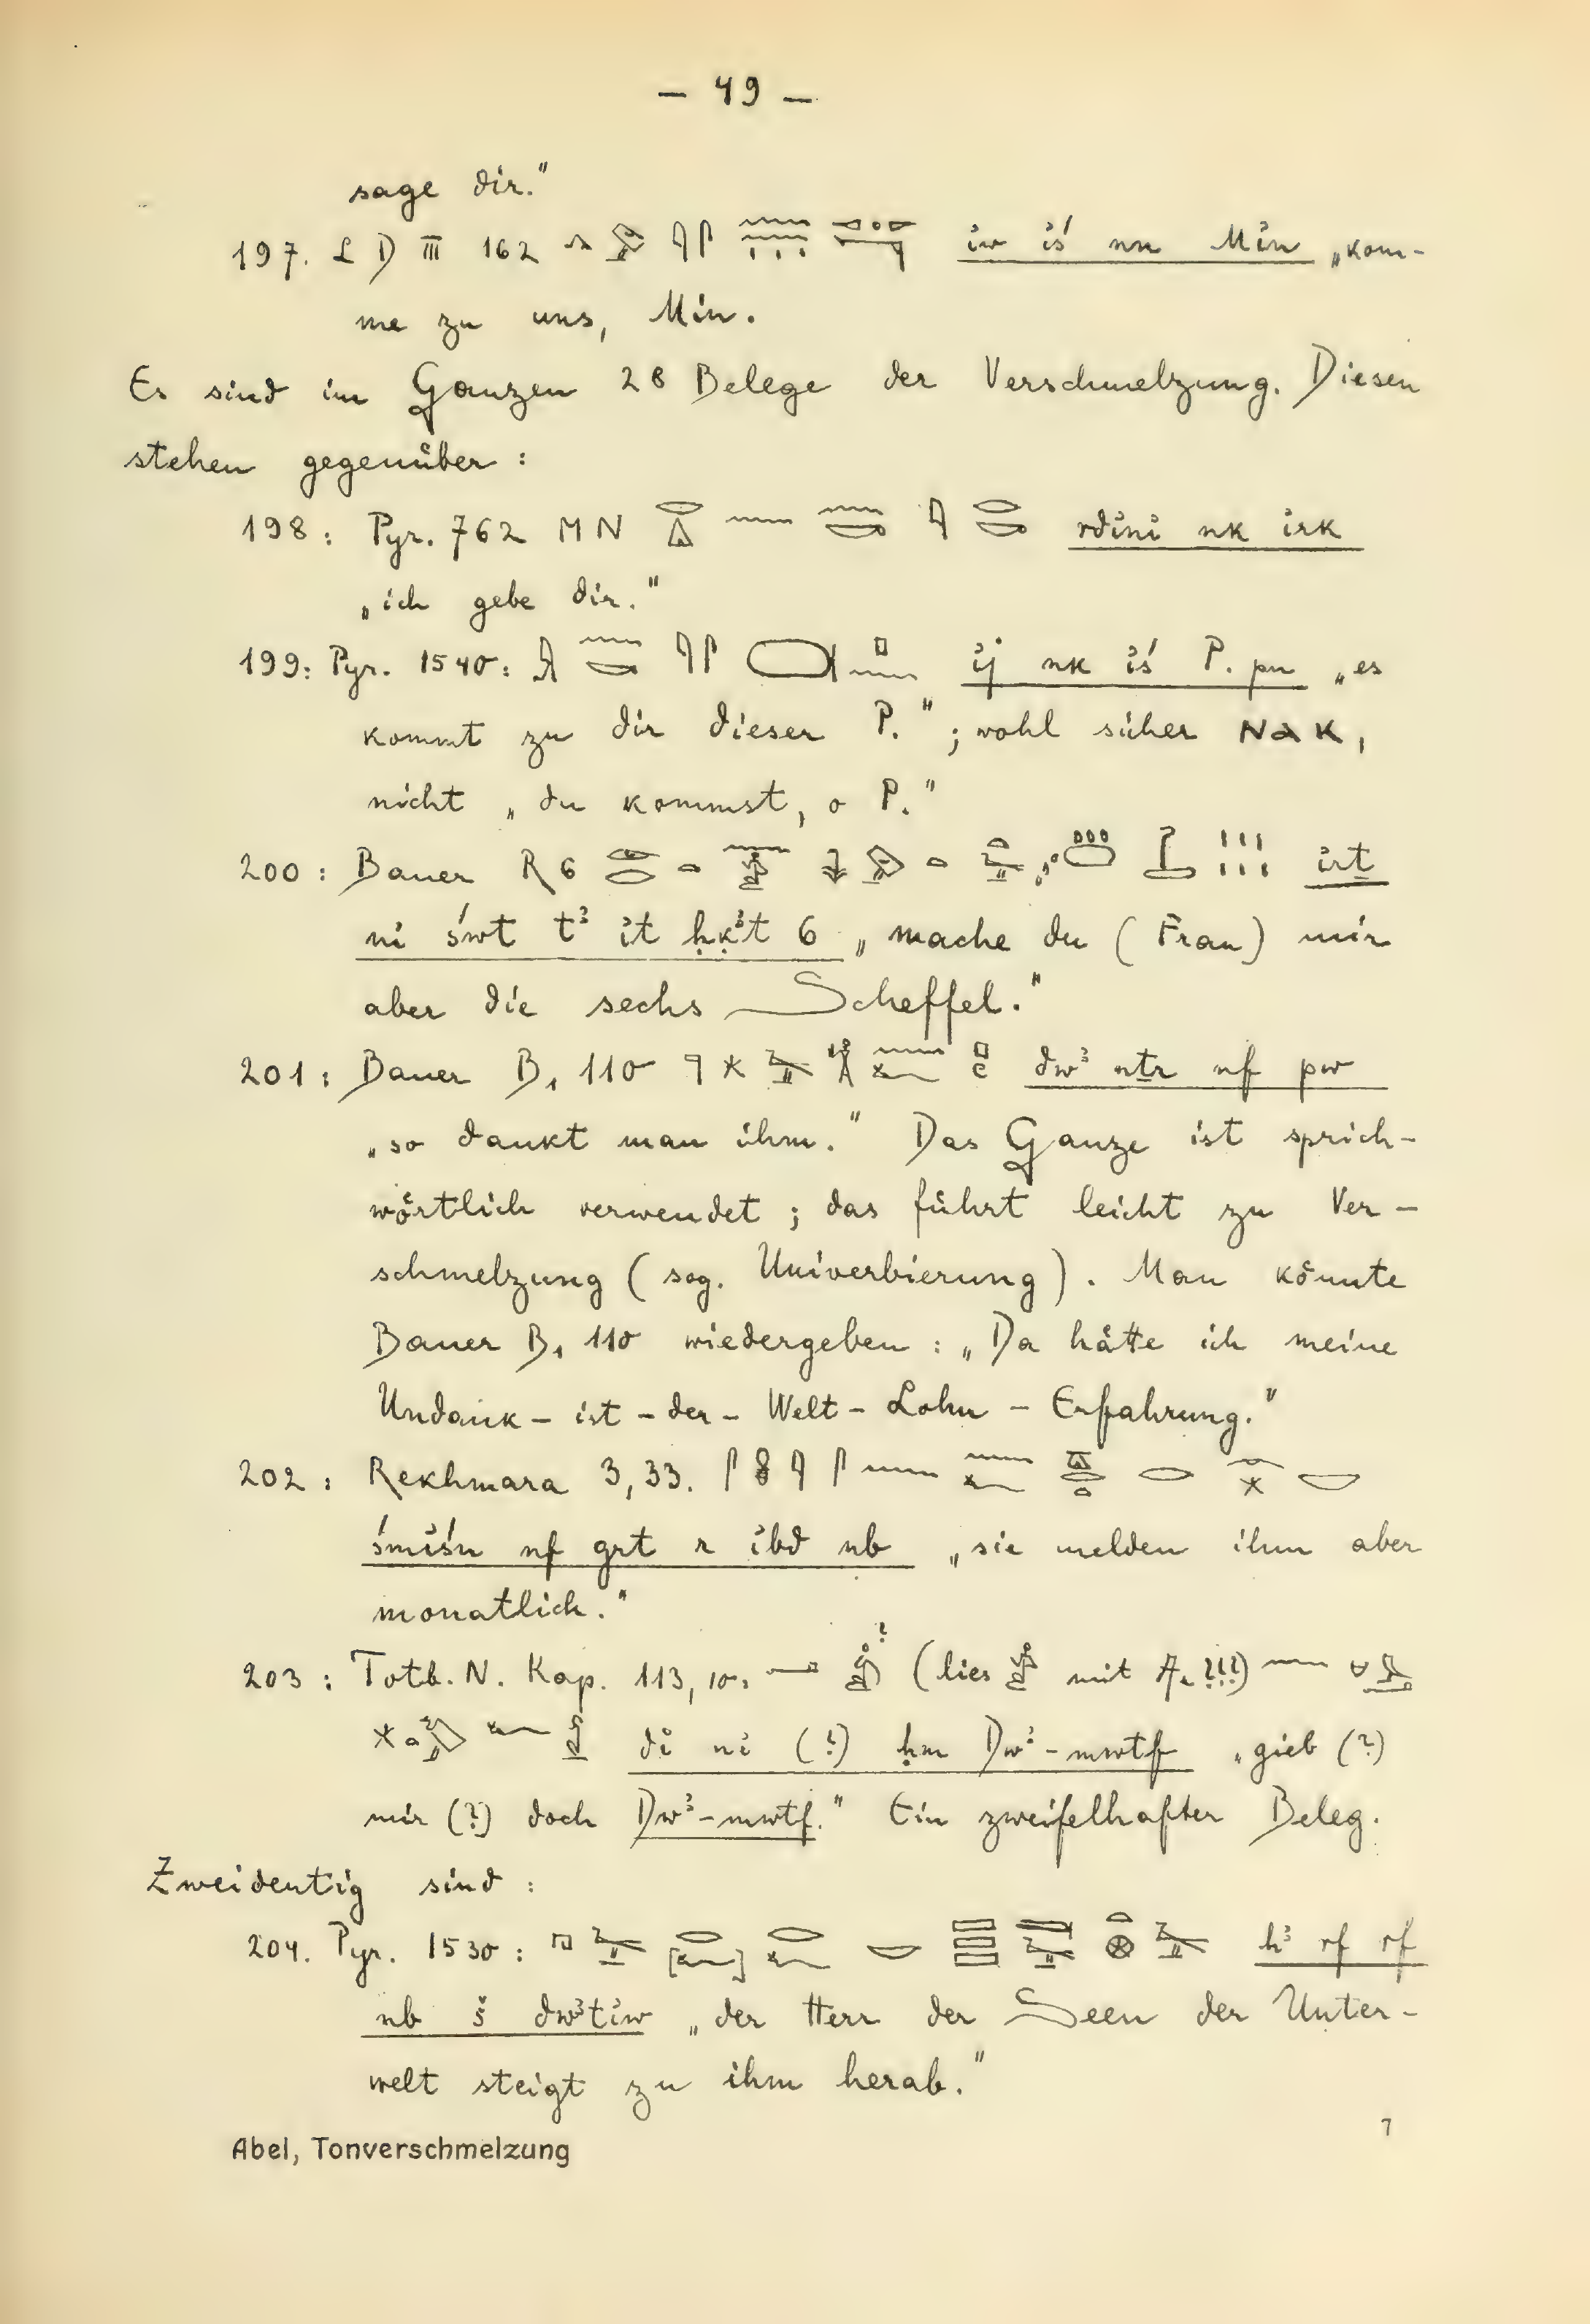 — 49 —
sage dir."
197. L D III 162 iw iś nn Min „kom-
me zu uns, Min.
Es sind im Ganzen 28 Belege der Verschmelzung. Diesen
stehen gegenüber :
198 : Pyr. 762 M N rdini nk irk
„ich gebe dir."
199 : Pyr. 1540 : ij nk iś P. pn „es
kommt zu dir dieser P." ; wohl sicher NaK,
nicht „du kommst, o P."
200 : Bauer R 6 irt
ni śwt tꜣ it ḥḳꜣt 6 „mache du (Frau) mir
aber die sechs Scheffel."
201 : Bauer B₁ 110 dwꜣ nṯr nf pw
„so dankt man ihm." Das Ganze ist sprich-
wörtlich verwendet ; das führt leicht zu Ver-
schmelzung (sog. Univerbierung). Man könnte
Bauer B₁ 110 wiedergeben : „Da hätte ich meine
Undank-ist-der-Welt-Lohn-Erfahrung."
202 : Rekhmara 3,33.
śmiśn nf grt r ibd nb „sie melden ihm aber
monatlich."
203 : Totb. N. Kap. 113, 10. (lies mit !!!)
di ni (?) ḥm Dwꜣ-mwtf „gieb (?)
mir (?) doch Dwꜣ-mwtf." Ein zweifelhafter Beleg.
Zweideutig sind :
204. Pyr. 1530 : hꜣ rf rf
nb š dwꜣtiw „der Herr der Seen der Unter-
welt steigt zu ihm herab."
Abel, Tonverschmelzung 7